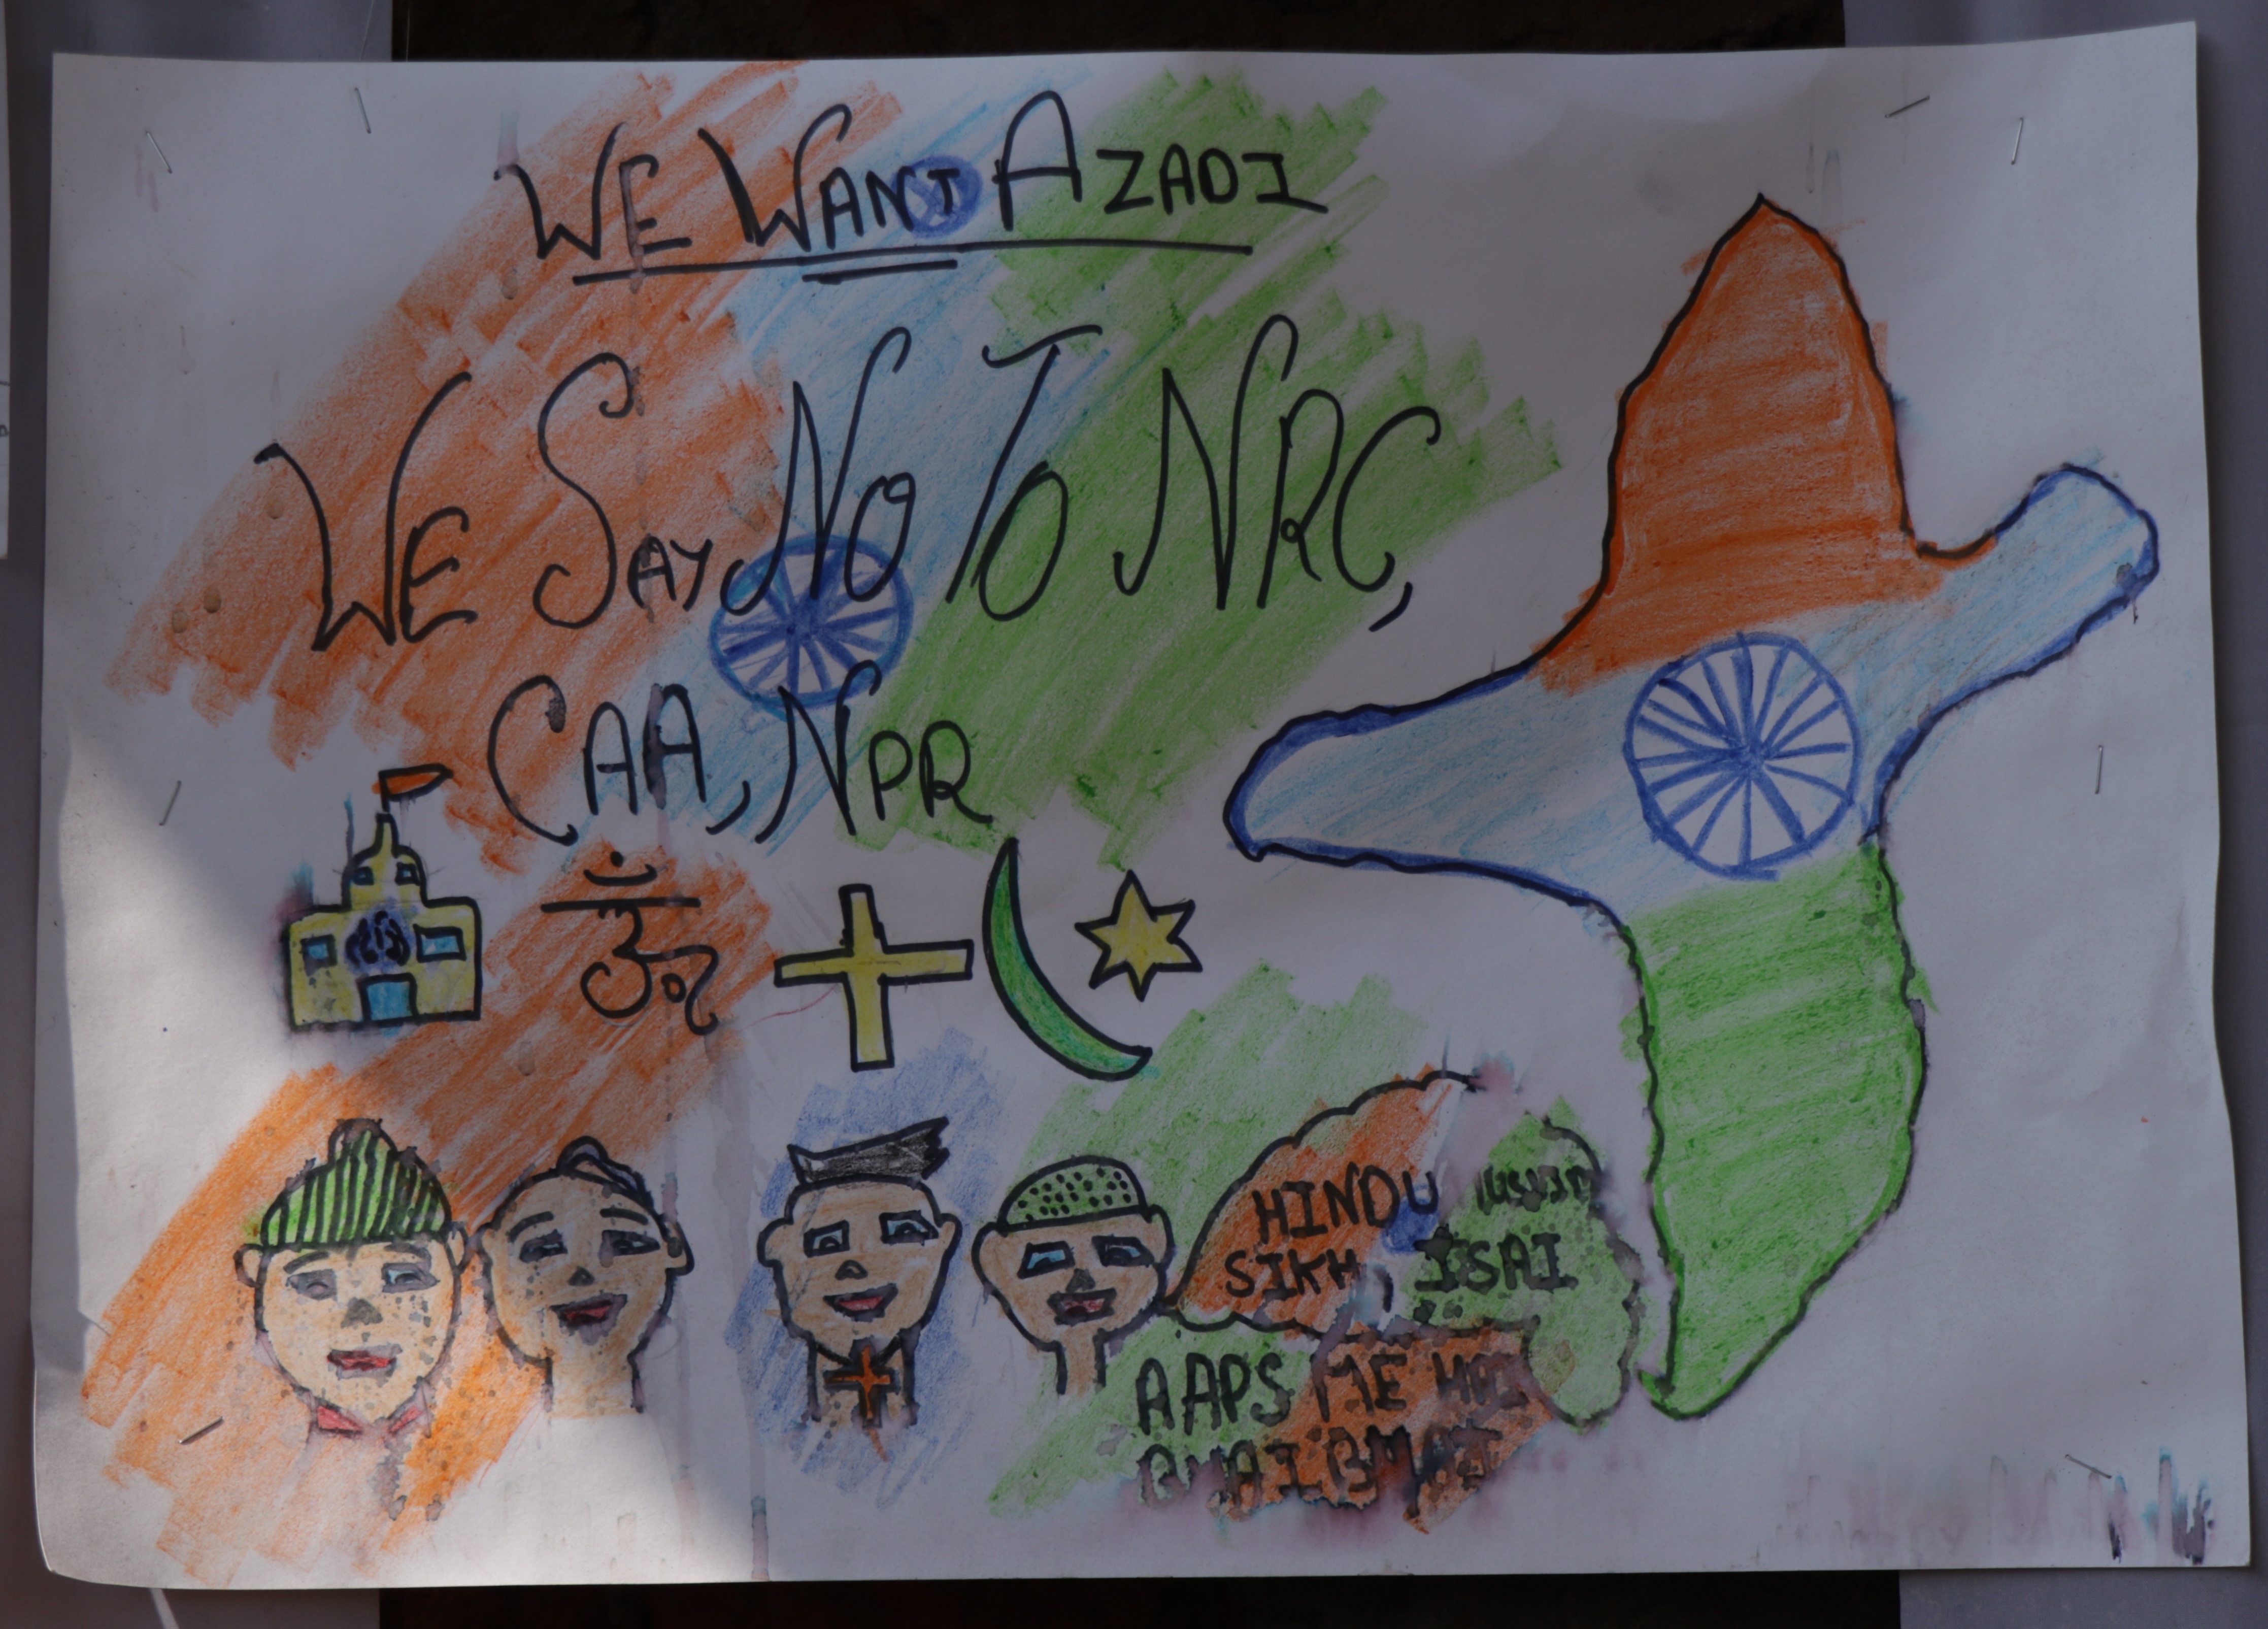 WE WANT AZADI
WE SAY NO TO NRC,
CAA, NPR
ॐ
HINDU MUSLIM
SIKH, ISAI
AAPS ME HAI
BHAI BHAI